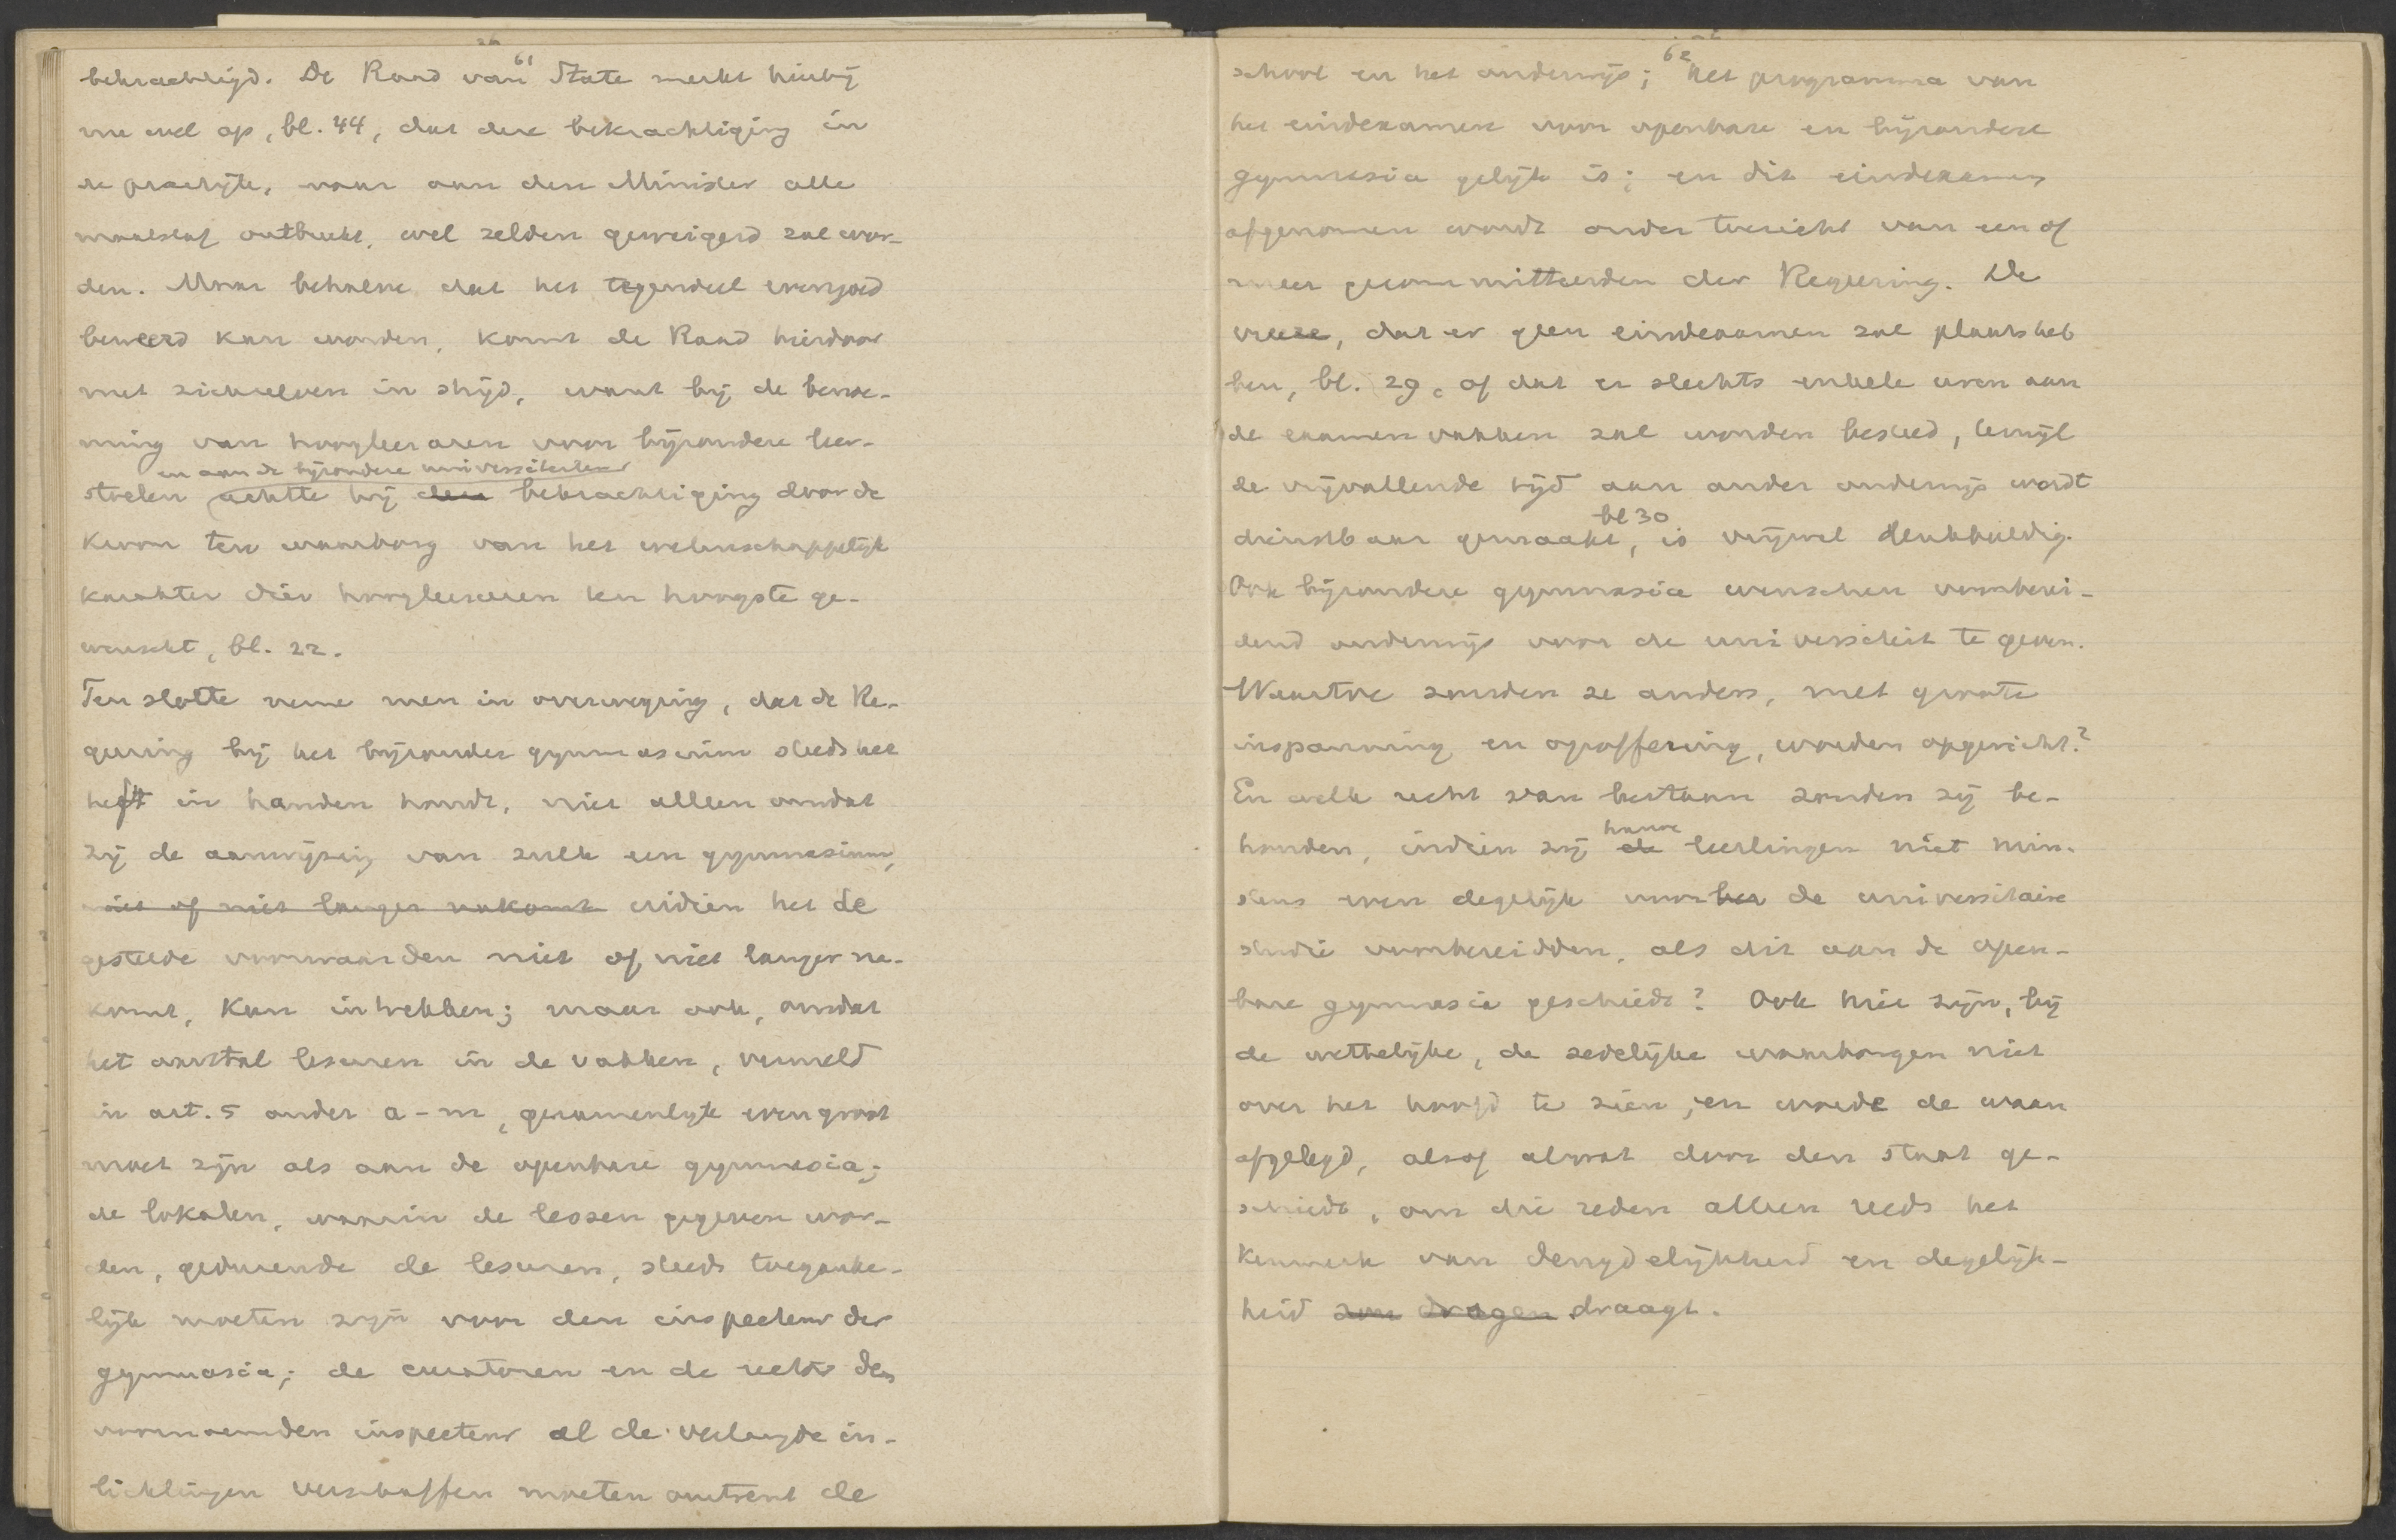 61
bekrachtigd. De Raad van State merkt hierbij
nu wel op, bl. 44, dat deze bekrachtiging in
de practijk, waar aan den Minister alle
maatstaf ontbreekt, wel zelden geweigerd zal wor-
den. Maar behalve dat het tegendeel evengoed
beweerd kan worden, komt de Raad hierdoor
met zichzelven in strijd, want bij de benoe-
ming van hoogleeraren voor bijzondere leer-
en aan de bijzondere universiteiten
stoelen achtte hij deze bekrachtiging door de
Kroon ten waarborg van het wetenschappelijk
karakter dier hoogleeraren ten hoogste ge-
wenscht, bl. 22.
Ten slotte neme men in overweging, dat de Re-
geering bij het bijzonder gymnasium steeds het
heft in handen houdt, niet alleen omdat
zij de aanwijzing van zulk een gymnasium,
niet of niet langer nakomt indien het de
gestelde voorwaarden niet of niet langer na-
komt, kan intrekken; maar ook, omdat
het aantal lesuren in de vakken, vermeld
in art. 5 onder a-m, gezamenlijk even groot
moet zijn als aan de openbare gymnasia;
de lokalen, waarin de lessen gegeven wor-
den, gedurende de lesuren, steeds toeganke-
lijk moeten zijn voor den inspecteur der
gymnasia; de curatoren en de rector den
voornoemden inspecteur al de verlangde in-
lichtingen verschaffen moeten omtrent de
62
school en het onderwijs; het programma van
het eindexamen voor openbare en bijzondere
gymnasia gelijk is; en dit eindexamen
afgenomen wordt onder toezicht van een of
meer gecommitteerden der Regeering. De
vreeze, dat er geen eindexamen zal plaats heb
ben, bl. 29, of dat er slechts enkele uren aan
de examenvakken zal worden besteed, terwijl
de vrijvallende tijd aan ander onderwijs wordt
bl 30
dienstbaar gemaakt, is vrijwel denkbeeldig.
Ook bijzondere gymnasia wenschen voorberei-
dend onderwijs voor de universiteit te geven.
Waartoe zouden ze anders, met groote
inspanning en opoffering, worden opgericht?
En welk recht van bestaan zouden zij be-
hunne
houden, indien zij de leerlingen niet min-
stens even degelijk voor het de universitaire
studie voorbereidden, als dit aan de open-
bare gymnasia geschiedt? Ook hier zijn, bij
de wettelijke, de zedelijke waarborgen niet
over het hoofd te zien, en worde de waan
afgelegd, alsof alwat door den staat ge-
schiedt, om die reden alleen reeds het
Kenmerk van deugdelijkheid en degelijk-
heid zou dragen draagt.